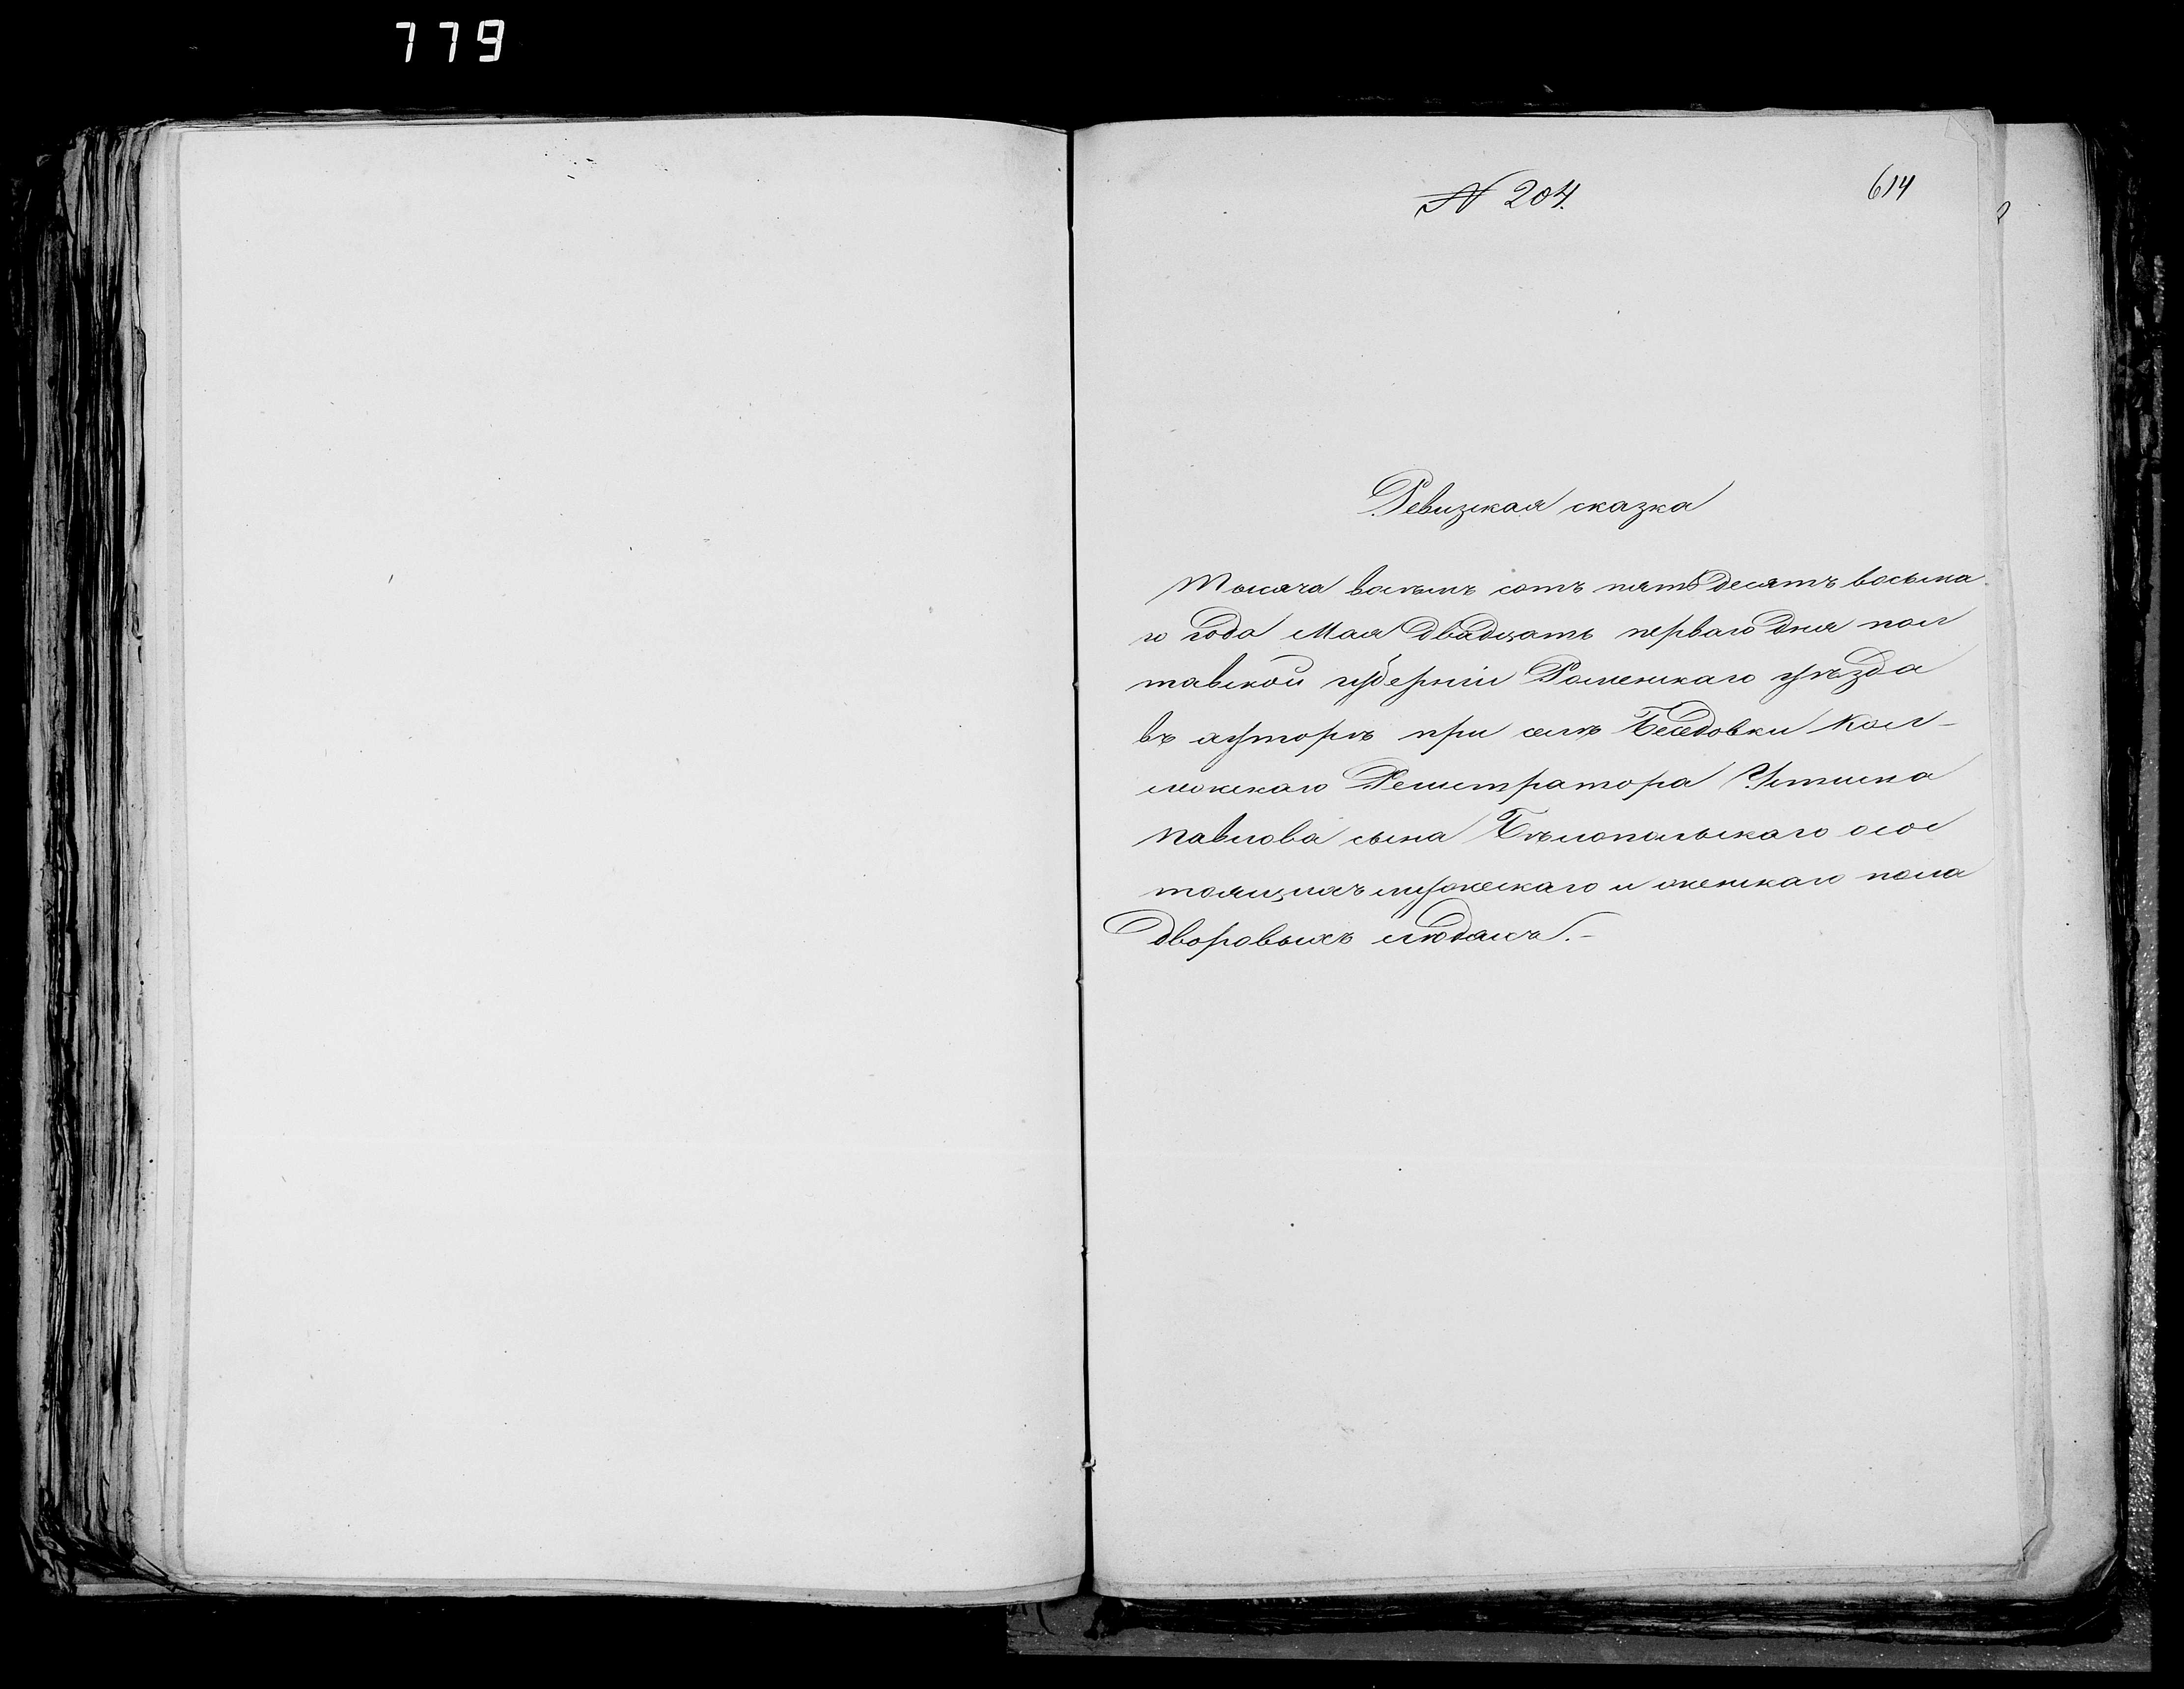 779
№ 204.
614
Ревизкая сказка
Тысяча восемь сотъ пятьдесятъ восьма
го года Мая двадцать перваго дня пол
тавской губерніи Роменскаго уѣзда
въ хуторѣ при селѣ Беседовки Кол-
лежскаго Регистратора Устина
Павлова сына Бѣлопольскаго о сос
тоящихъ мужескаго и женскаго пола
дворовыхъ людяхъ.-